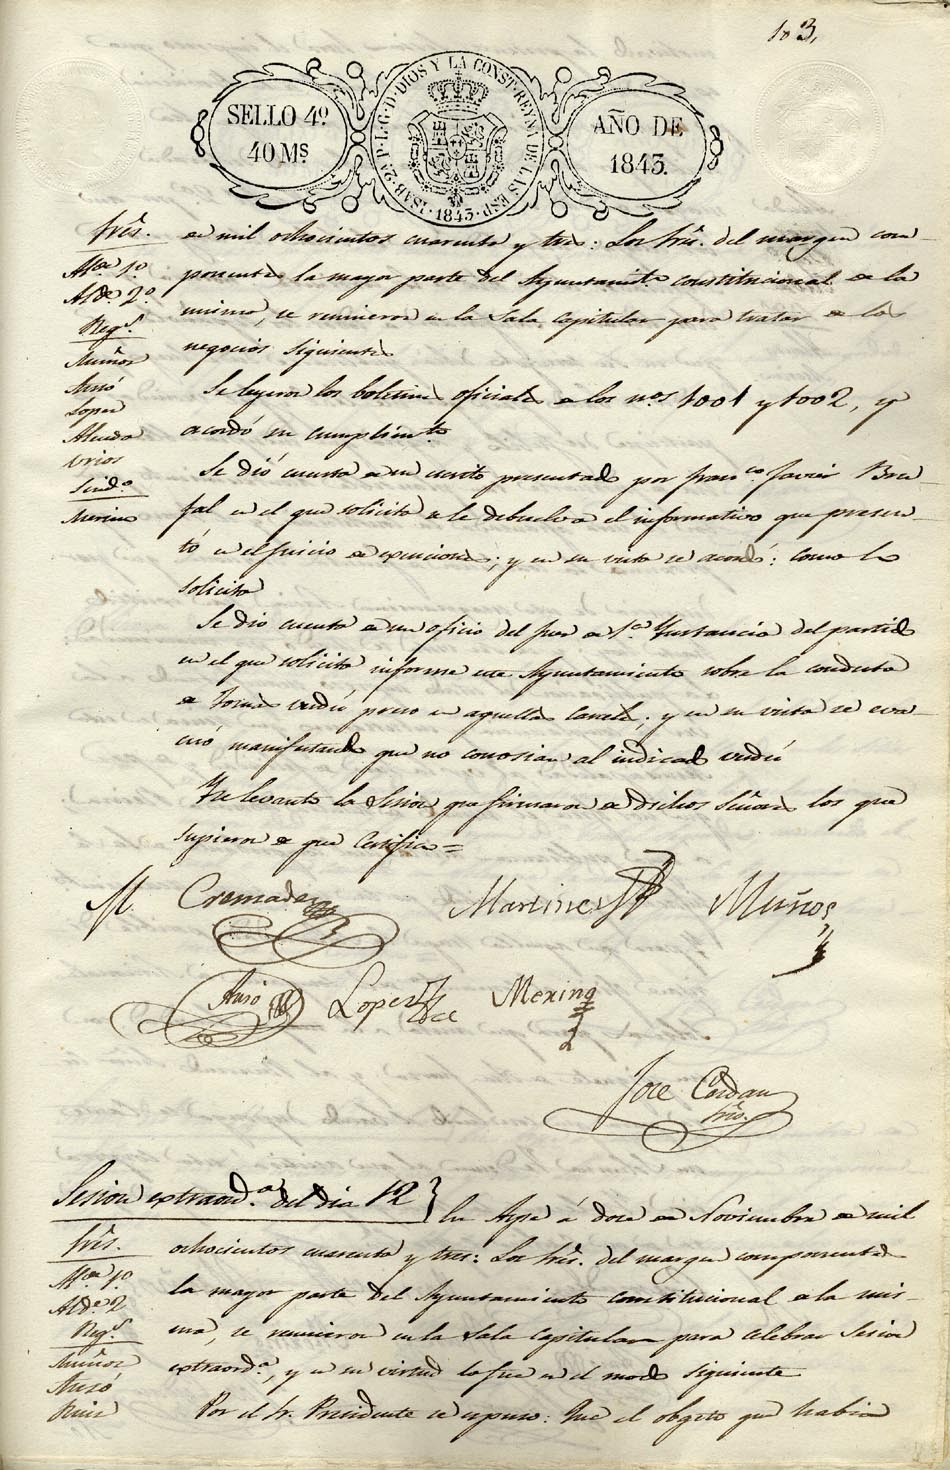 103,
SELLO 4º
40 Ms
ISAB. 2ª P. L. G. D. DIOS Y LA CONST. REYNA DE LAS ESP.
1843
AÑO DE
1843.
Sres.
Alde 1º
Alde 2º
Regs.
Muñoz
Ausó
Lopez
Almodo
Urios
Sindº
Merino
de mil ochocientos cuarenta y tres: Los Sres. del margen com-
ponentes la mayor parte del Ayuntamto constitucional de la
misma, se reunieron en la Sala Capitular para tratar de los
negocios siguientes
Se leyeron los boletines oficiales de los nos 1001 y 1002, y
acordó su cumplimto
Se dió cuenta de un escrito presentado por Franco Javier Bru-
fal en el que solicita se le debuelva el informativo que presen-
tó en el juicio de exenciones; y en su vista se acordó: como lo
solicita
Se dió cuenta de un oficio del Juez de 1ª Ynstancia del partido
en el que solicita informe este Ayuntamiento sobre la conducta
de Tomás Verdú preso en aquellas Carceles; y en su vista se eva-
cuó manifestando que no conosian al indicado Verdú
Y se levantó la Sesion que firmaron de dichos Señores los que
supieron de que Certifico=
M. Cremades
Martines
Muños
Ausó
Lopez
Merino
Jose Cerdan
Srio.
Sesion extraordª del dia 12
En Aspe á doce de Noviembre de mil
Sres.
Alde 1º
Alde 2
Regs.
Muñoz
Ausó
Ruiz
ochocientos cuarenta y tres: Los Sres. del margen componentes
la mayor parte del Ayuntamiento constitucional de la mis-
ma, se reunieron en la Sala Capitular para celebrar Sesion
extraordª, y en su virtud lo fue en el modo siguiente
Por el Sr. Presidente se espuso: Que el obgeto que habia